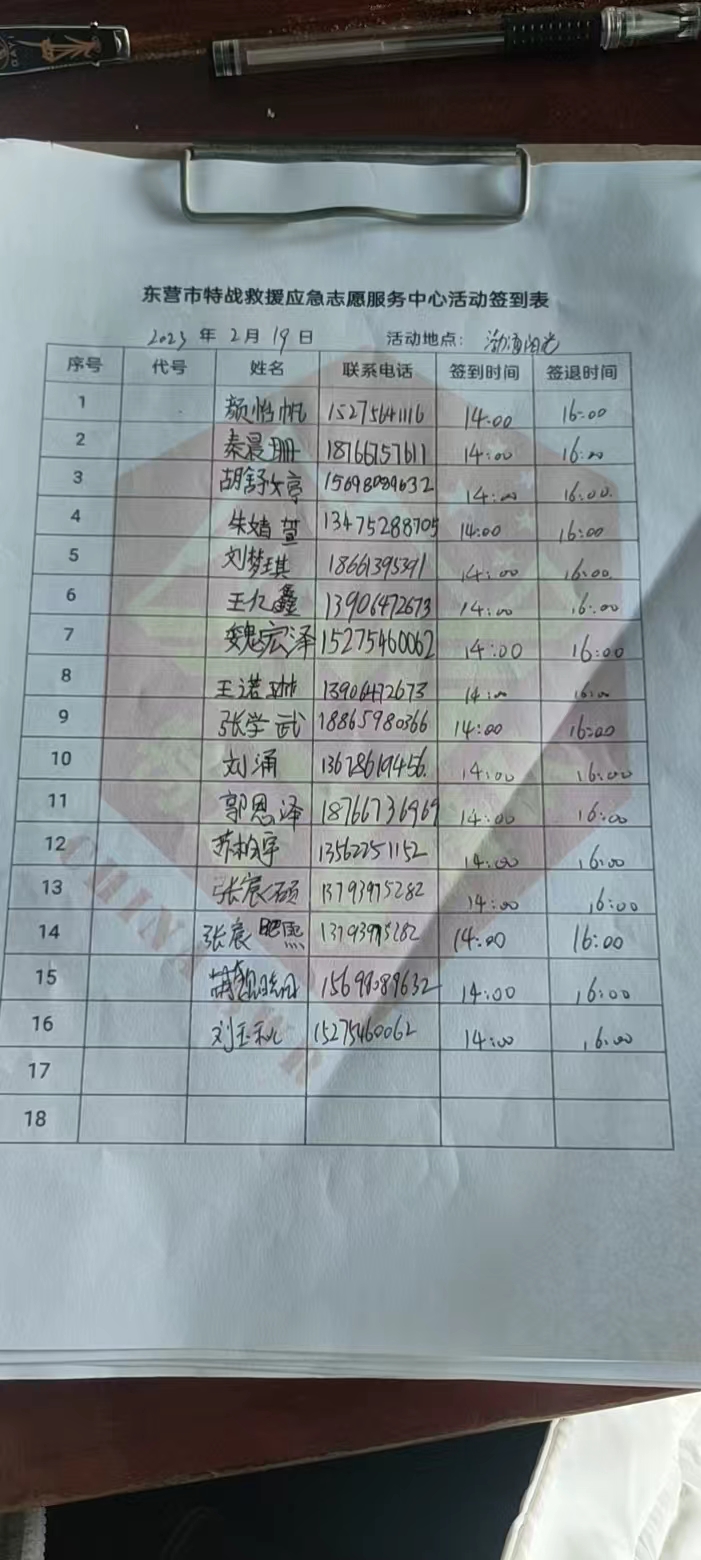 东营市特战救援应急志愿服务中心活动签到表
2023 年 2 月 19 日 活动地点： 渤海阳光
序号 代号 姓名 联系电话 签到时间 签退时间
1 颜怡帆 15275641116 14:00 16:00
2 秦晨珊 18766757611 14:00 16:00
3 胡舒婷 15698089632 14:00 16:00
4 朱婧萱 13475288705 14:00 16:00
5 刘梦琪 18661395391 14:00 16:00
6 王亿鑫 13906472673 14:00 16:00
7 魏宏泽 15275460062 14:00 16:00
8 王诺琳 13906472673 14:00 16:00
9 张学武 18865980366 14:00 16:00
10 刘涌 13678619456 14:00 16:00
11 郭恩泽 18766736969 14:00 16:00
12 苏柏宇 13562251152 14:00 16:00
13 张宸硕 13793975282 14:00 16:00
14 张宸熙 13793975282 14:00 16:00
15 15698089632 14:00 16:00
16 刘玉秋 15275460062 14:00 16:00
17
18
CHINA